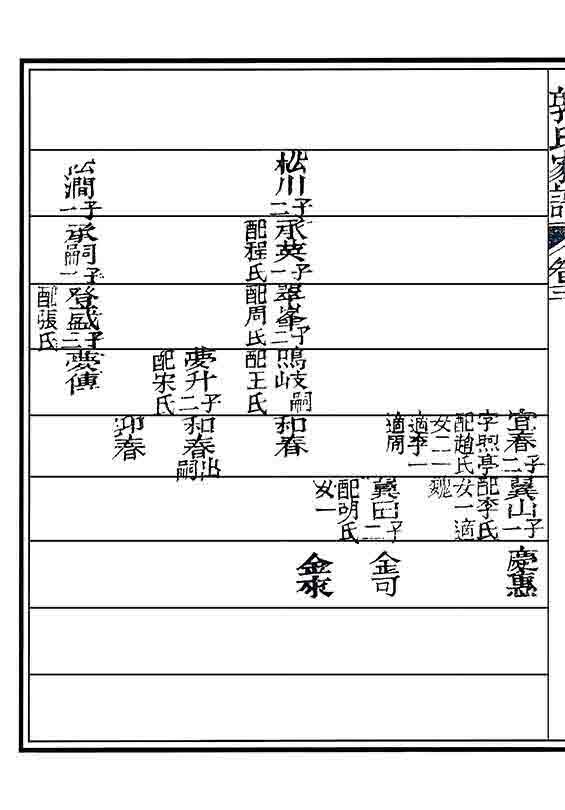 郭氏家譜 卷三
宜春子二冀山子一慶惠
字照亭配李氏
配趙氏女一適
女二一魏
適李一
適周
冀田子二金可
配明氏
女一
松川子二承英子一翠峯子二鳴岐嗣和春
配程氏配周氏配王氏
夢升子二和春出嗣
配宋氏
迎春
松澗子一承嗣子一登盛子三夢傳
配張氏